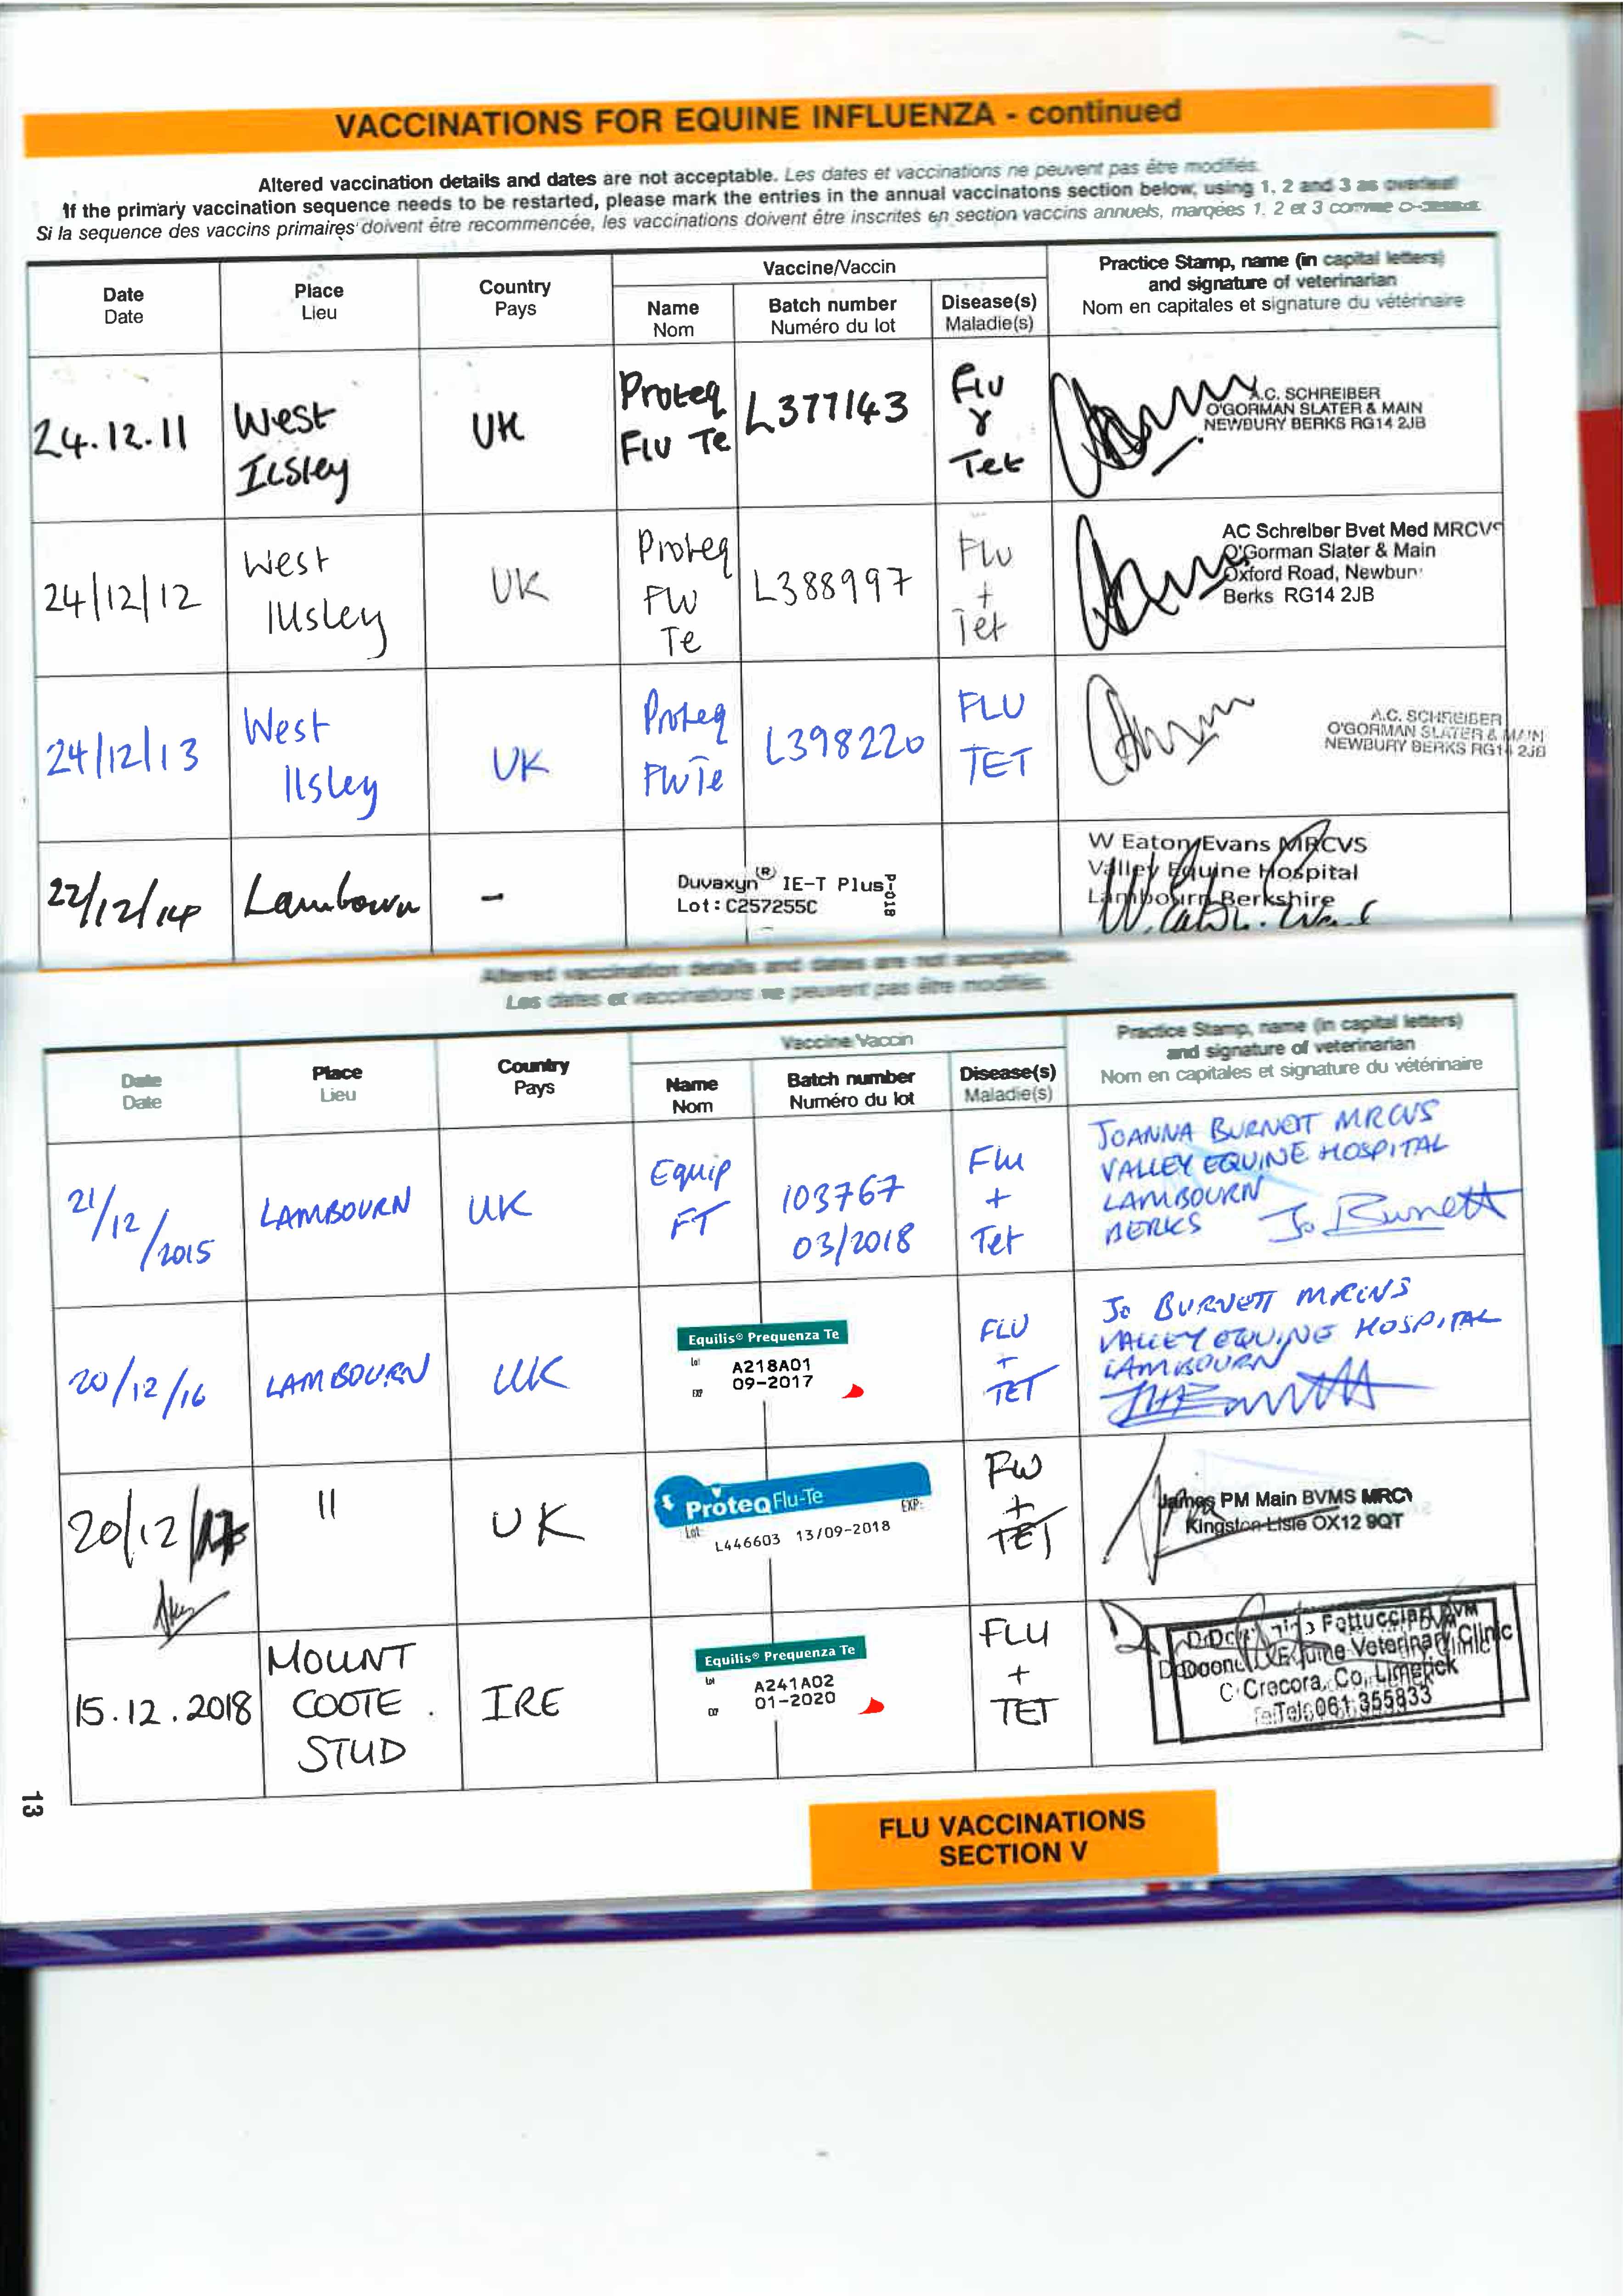 VACCINATIONS FOR EQUINE INFLUENZA - continued
Altered vaccination details and dates are not acceptable. Les dates et vaccinations ne peuvent pas être modifiés.
If the primary vaccination sequence needs to be restarted, please mark the entries in the annual vaccinatons section below, using 1, 2 and 3 as overleaf
Si la sequence des vaccins primaires doivent être recommencée, les vaccinations doivent être inscrites en section vaccins annuels, marqées 1, 2 et 3 comme
Date
Date
Place
Lieu
Country
Pays
Vaccine/Vaccin
Name
Nom
Batch number
Numéro du lot
Disease(s)
Maladie(s)
Practice Stamp, name (in capital letters)
and signature of veterinarian
Nom en capitales et signature du vétérinaire
24.12.11
West
Ilsley
UK
Proteq
Flu Te
L377143
Flu
&
Tet
A.C. SCHREIBER
O'GORMAN SLATER & MAIN
NEWBURY BERKS RG14 2JB
24/12/12
West
Ilsley
UK
Proteq
Flu
Te
L388997
Flu
+
Tet
AC Schreiber Bvet Med MRCVS
O'Gorman Slater & Main
Oxford Road, Newbury
Berks RG14 2JB
24/12/13
West
Ilsley
UK
Proteq
FluTe
L398220
FLU
TET
A.C. SCHREIBER
O'GORMAN SLATER & MAIN
NEWBURY BERKS RG14 2JB
22/12/14
Lambourn
-
Duvaxyn(R) IE-T Plus
Lot: C257255C
W Eaton Evans MRCVS
Valley Equine Hospital
Lambourn Berkshire
Altered vaccination details and dates are not acceptable.
Les dates et vaccinations ne peuvent pas être modifiés.
Date
Date
Place
Lieu
Country
Pays
Vaccine/Vaccin
Name
Nom
Batch number
Numéro du lot
Disease(s)
Maladie(s)
Practice Stamp, name (in capital letters)
and signature of veterinarian
Nom en capitales et signature du vétérinaire
21/12/2015
LAMBOURN
UK
Equip
FT
103767
03/2018
Flu
+
Tet
JOANNA BURNETT MRCVS
VALLEY EQUINE HOSPITAL
LAMBOURN
BERKS Jo Burnett
20/12/16
LAMBOURN
UK
Equilis® Prequenza Te
Lot A218A01
EXP 09-2017
FLU
+
TET
Jo BURNETT MRCVS
VALLEY EQUINE HOSPITAL
LAMBOURN
20/12/17
"
UK
ProteqFlu-Te
Lot: EXP:
L446603 13/09-2018
Flu
+
TET
James PM Main BVMS MRCV
Kingston Lisle OX12 9QT
15.12.2018
MOUNT
COOTE.
STUD
IRE
Equilis® Prequenza Te
Lot A241A02
EXP 01-2020
FLU
+
TET
Fattucciari
Equine Veterinary Clinic
Crecora, Co. Limerick
Tel: 061 355833
13
FLU VACCINATIONS
SECTION V